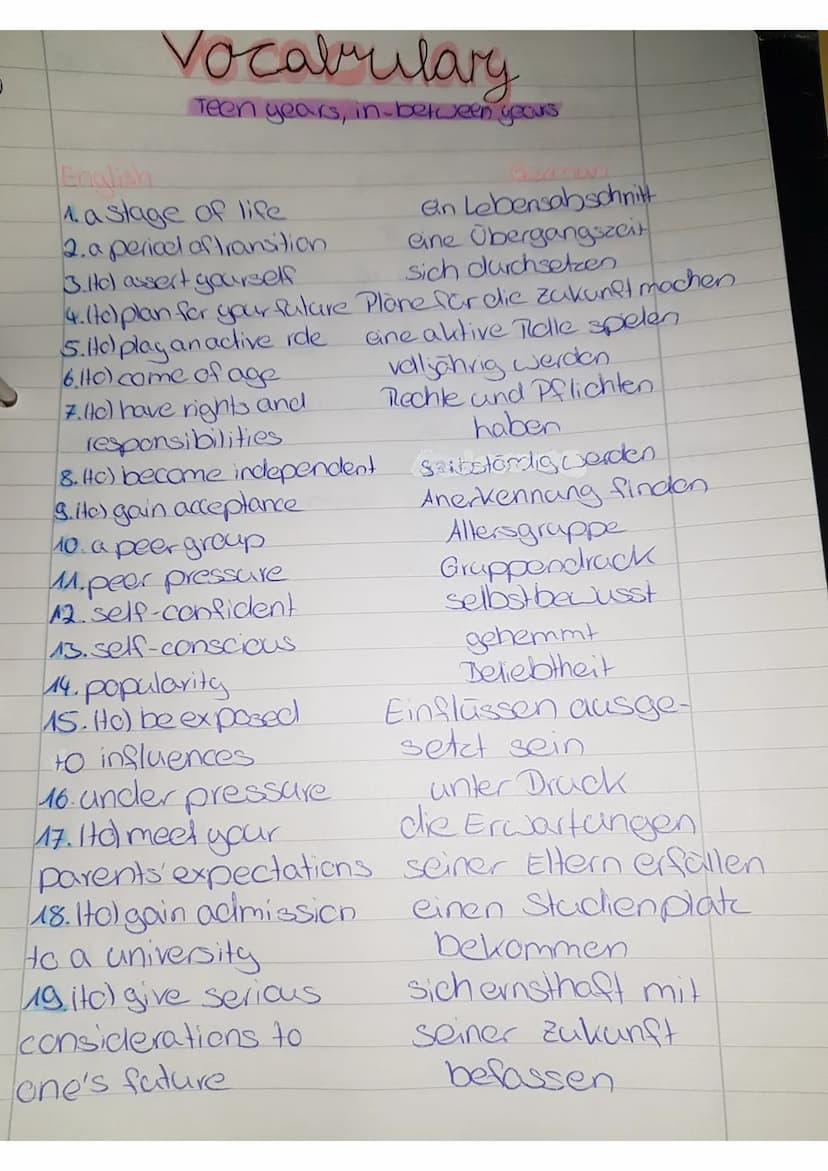 Vocabulary
Teen years, in-between years
English German
1. a stage of life ein Lebensabschnitt
2. a period of transition eine Übergangszeit
3. (to) assert yourself sich durchsetzen
4. (to) plan for your future Pläne für die Zukunft machen
5. (to) play an active role eine aktive Rolle spielen
6. (to) come of age volljährig werden
7. (to) have rights and Rechte und Pflichten
responsibilities haben
8. (to) become independent selbstständig werden
9. (to) gain acceptance Anerkennung finden
10. a peer group Altersgruppe
11. peer pressure Gruppendruck
12. self-confident selbstbewusst
13. self-conscious gehemmt
14. popularity Beliebtheit
15. (to) be exposed Einflüssen ausge-
to influences setzt sein
16. under pressure unter Druck
17. (to) meet your die Erwartungen
parents' expectations seiner Eltern erfüllen
18. (to) gain admission einen Studienplatz
to a university bekommen
19. (to) give serious sich ernsthaft mit
considerations to seiner Zukunft
one's future befassen